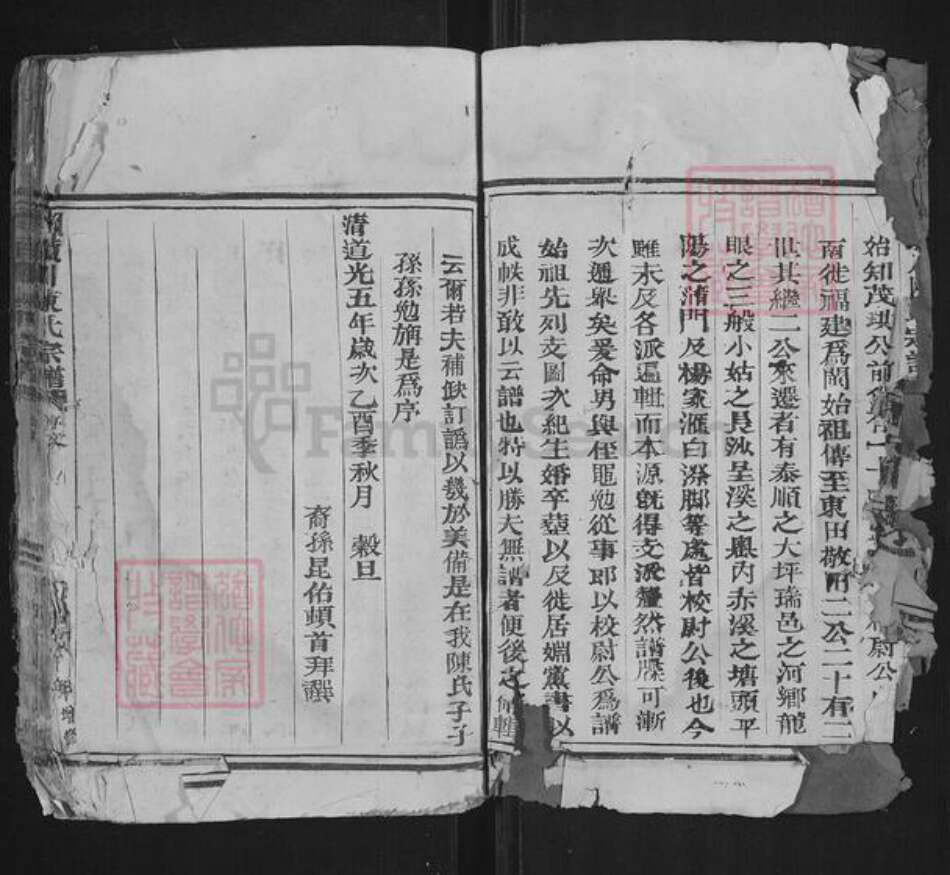 始知茂珙公前
南徙福建為閩始祖傳至東田敬附二公二十有二
世其繼二公來遷者有泰順之大坪瑞邑之河鄉龍
眼之三般小姑之長泓呈溪之𡒃內赤溪之塘頭平
陽之蒲門及楊家滙白潦腳等處皆校尉公後也今
雖未及各派徧輯而本源旣得支派釐然譜牒可漸
次遞舉矣爰命男與侄黽勉從事即以校尉公為譜
始祖先列支圖次紀生婚卒塟以及徙居姻黨書以
成帙非敢以云譜也特以勝夫無譜者便後之
云爾若夫補缺訂譌以幾於美備是在我陳氏子子
孫孫勉旃是為序
清道光五年歲次乙酉季秋月 榖旦
裔孫昆佑頓首拜譔
潁川陳氏宗譜
譜學會
Family Search